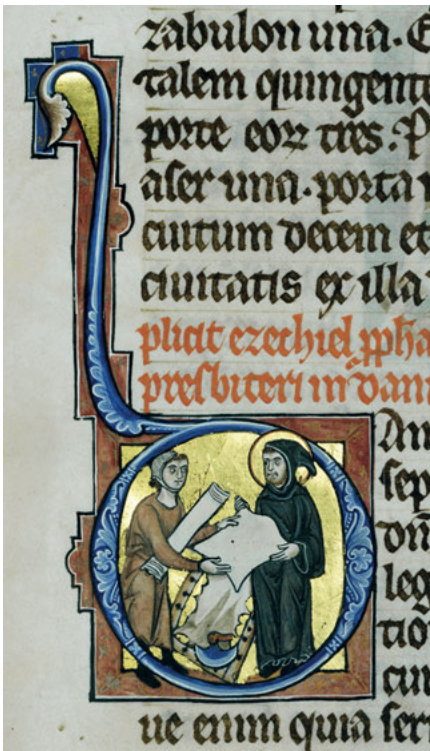 zabulon una. E
talem quingente
porte eorꝝ tres. P
aser una. porta
cuitum decem et
ciuitatis ex illa
plicit ezechiel ppha
presbiteri in dani
DAn
sep
dn̄i
leg
tio
cur
ue enim quia ser